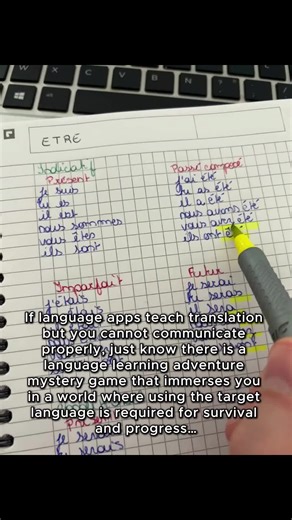 ETRE
Indicatif
Présent
je suis
tu es
il est
nous sommes
vous êtes
ils sont
Passé composé
j'ai été
tu as été
il a été
nous avons été
vous avez été
ils ont été
Imparfait
j'étais
Futur
je serai
tu seras
If language apps teach translation
but you cannot communicate
properly, just know there is a
language learning adventure
mystery game that immerses you
in a world where using the target
language is required for survival
and progress...
je serais